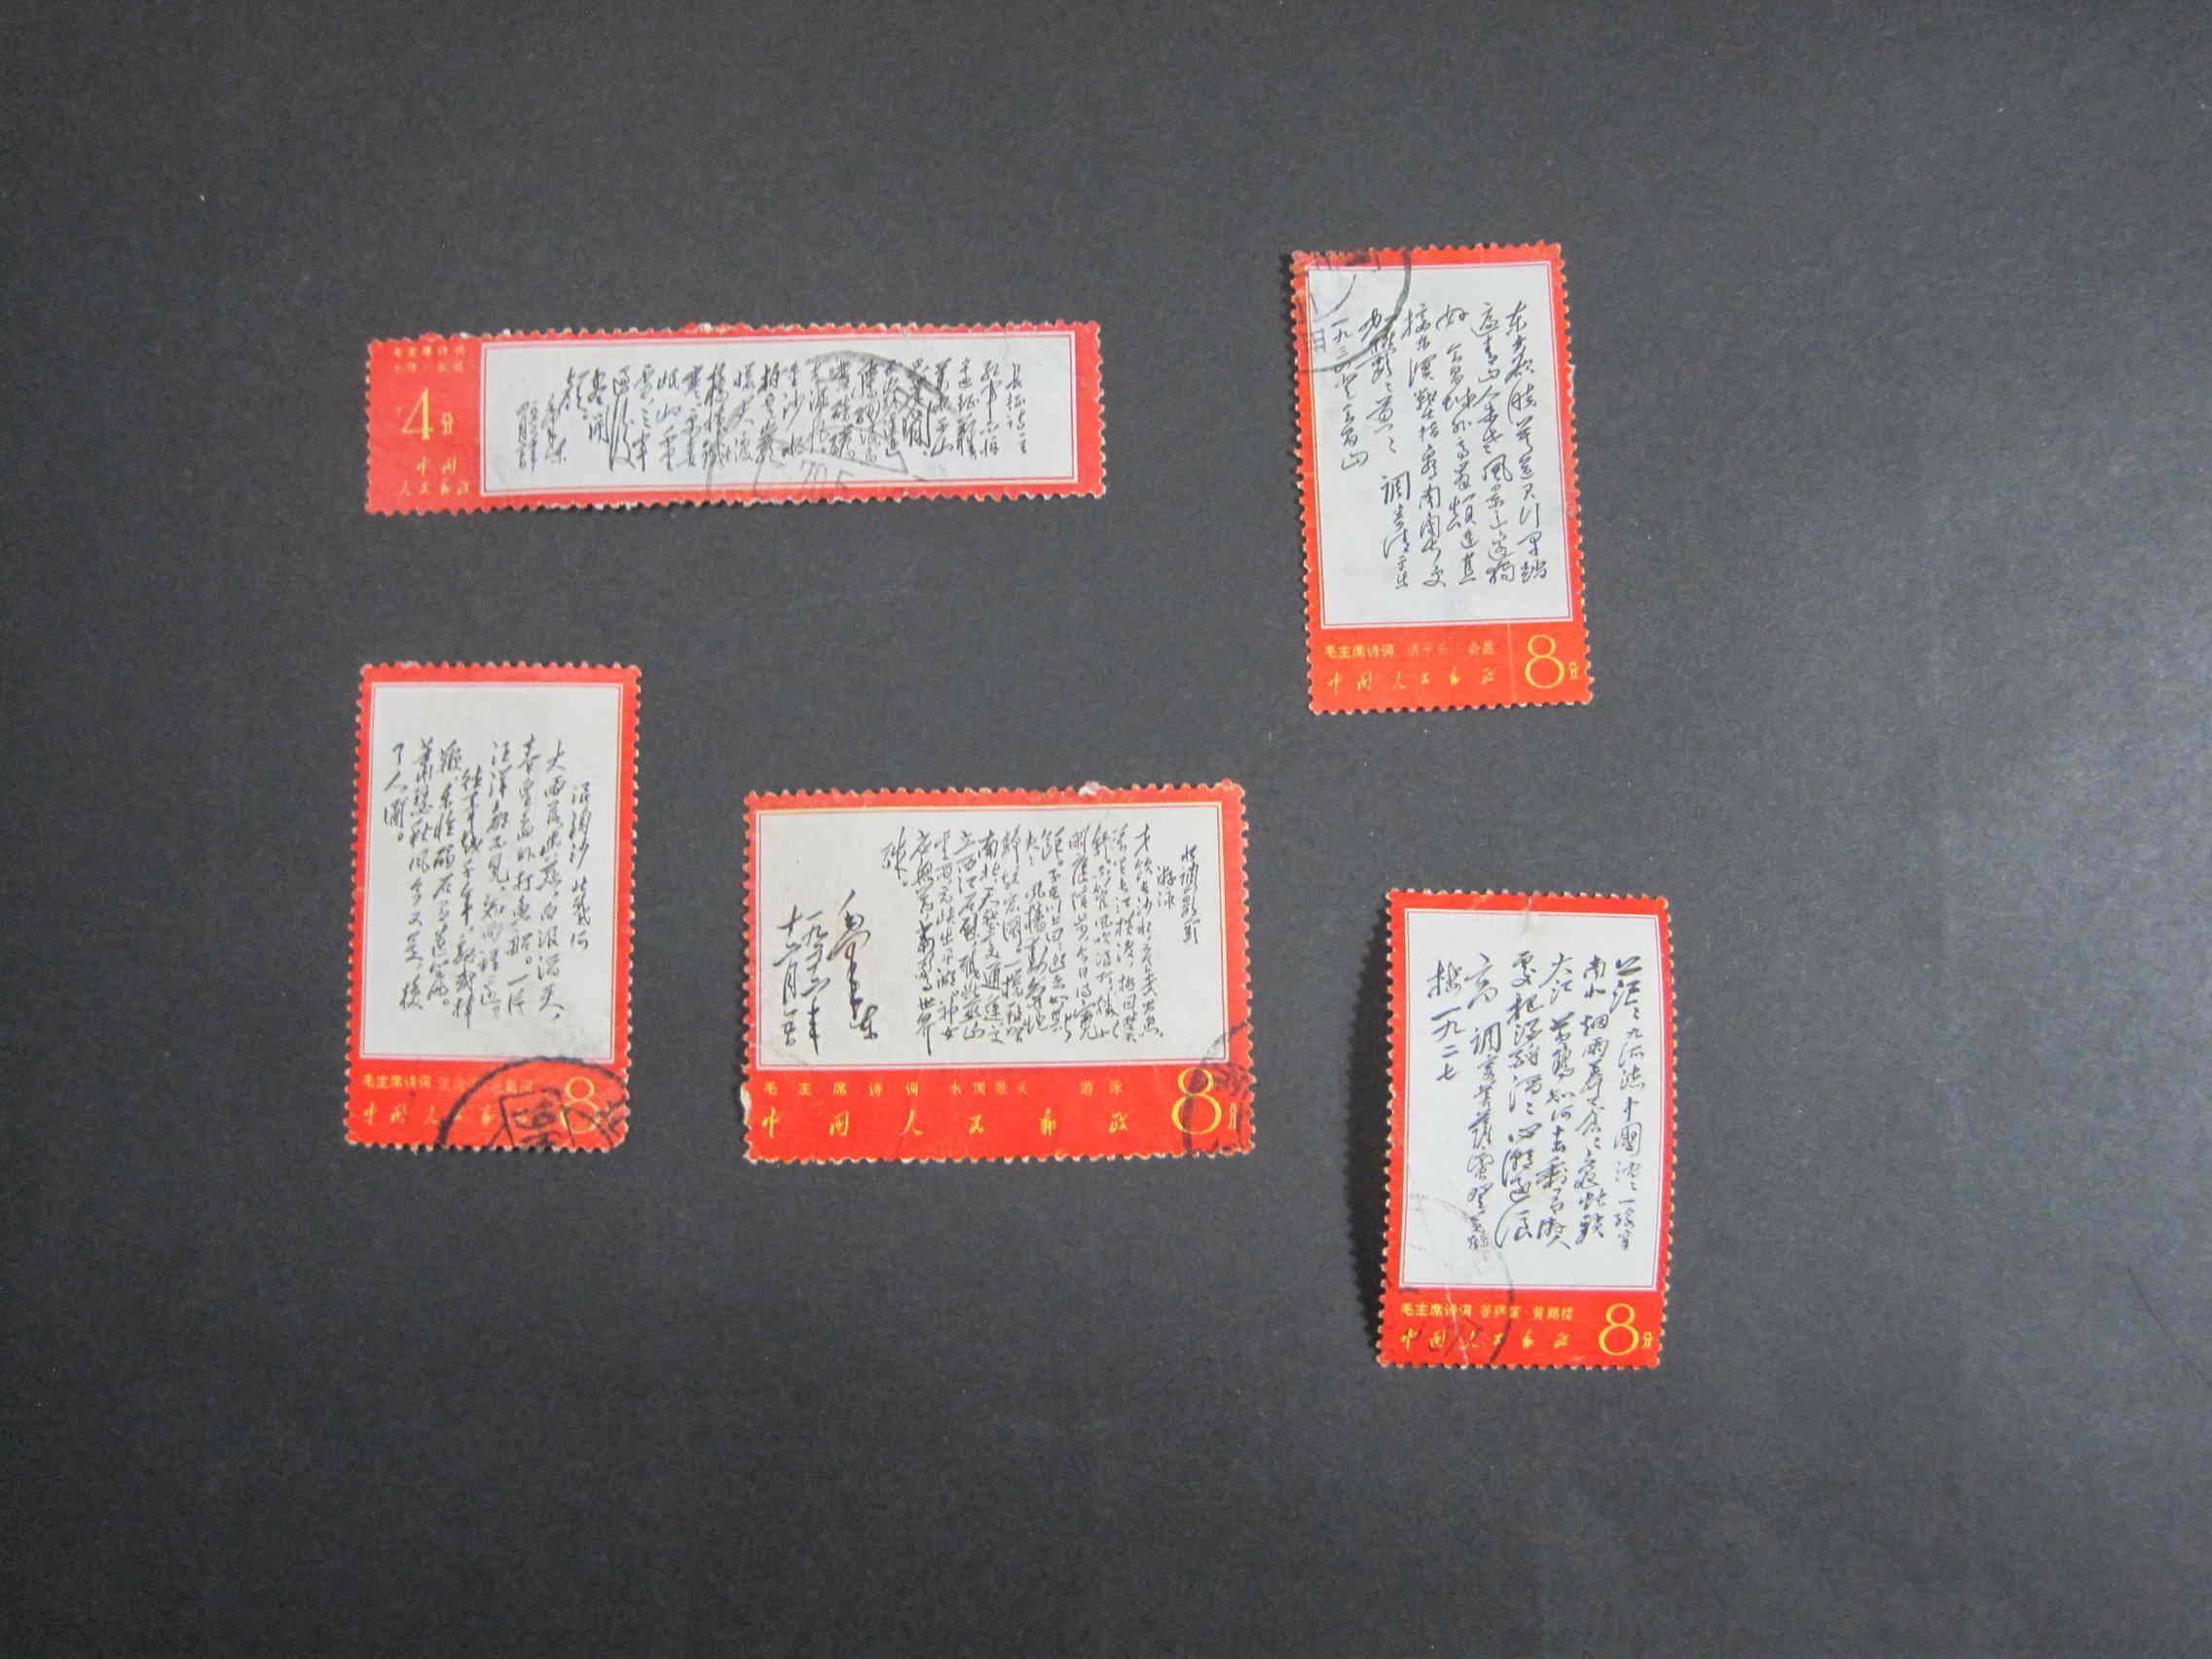 毛主席诗词
七律·长征
4分
中国
人民邮政
长征诗一首
红军不怕
远征难,
万水千山
只等闲。
五岭逶迤
腾细浪,
乌蒙磅礴
走泥丸。
金沙水
拍云崖
暖,大渡
桥横铁
索寒。更喜
岷山千里
雪,三军
过后
尽开
颜。
毛泽东
东方欲晓莫道君行早踏
遍青山人未老风景这边独
好 会昌城外高峰颠连直
接东溟战士指看南粤更
加郁々葱々 调寄清平乐
一九三四登会昌山
毛主席诗词 清平乐·会昌
中国人民邮政
8分
浪淘沙 北戴河
大雨落幽燕,白浪滔天,
秦皇岛外打鱼船。一片
汪洋都不见,知向谁边。
往事越千年,魏武挥
鞭,东临碣石有遗篇。
萧瑟秋风今又是,换
了人间。
毛主席诗词 浪淘沙·北戴河
中国人民邮政
8
水调歌头
游泳
才饮长沙水,又食武昌鱼。
万里长江横渡,极目楚天
舒。不管风吹浪打,胜似
闲庭信步,今日得宽
馀。子在川上曰:逝者如斯
夫!风樯动,龟蛇
静,起宏图。一桥飞架
南北,天堑变通途。更
立西江石壁,截断巫山
云雨,高峡出平湖。神女
应无恙,当惊世界
殊。
毛泽东
一九五六年
十二月五日
毛主席诗词 水调歌头 游泳
中国人民邮政
8分
茫々九派流中国 沉々一线穿
南北 烟雨莽苍々 龟蛇锁
大江 黄鹤知何去 剩有游人
处 把酒酹滔々 心潮逐浪
高 调寄菩萨蛮 登黄鹤
楼 一九二七
毛主席诗词 菩萨蛮·黄鹤楼
中国人民邮政
8分